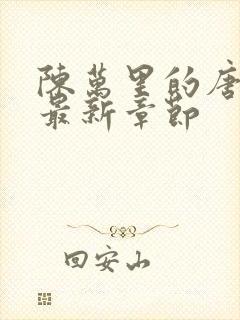 陳萬里的唐
最新章節
回安山